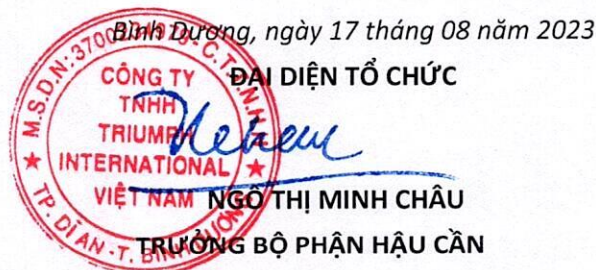 Bình Dương, ngày 17 tháng 08 năm 2023
ĐẠI DIỆN TỔ CHỨC
CÔNG TY
TNHH
TRIUMPH
INTERNATIONAL
VIỆT NAM
M.S.D.N:
TP. DĨ AN - T. BÌNH DƯƠNG
NGÔ THỊ MINH CHÂU
TRƯỞNG BỘ PHẬN HẬU CẦN